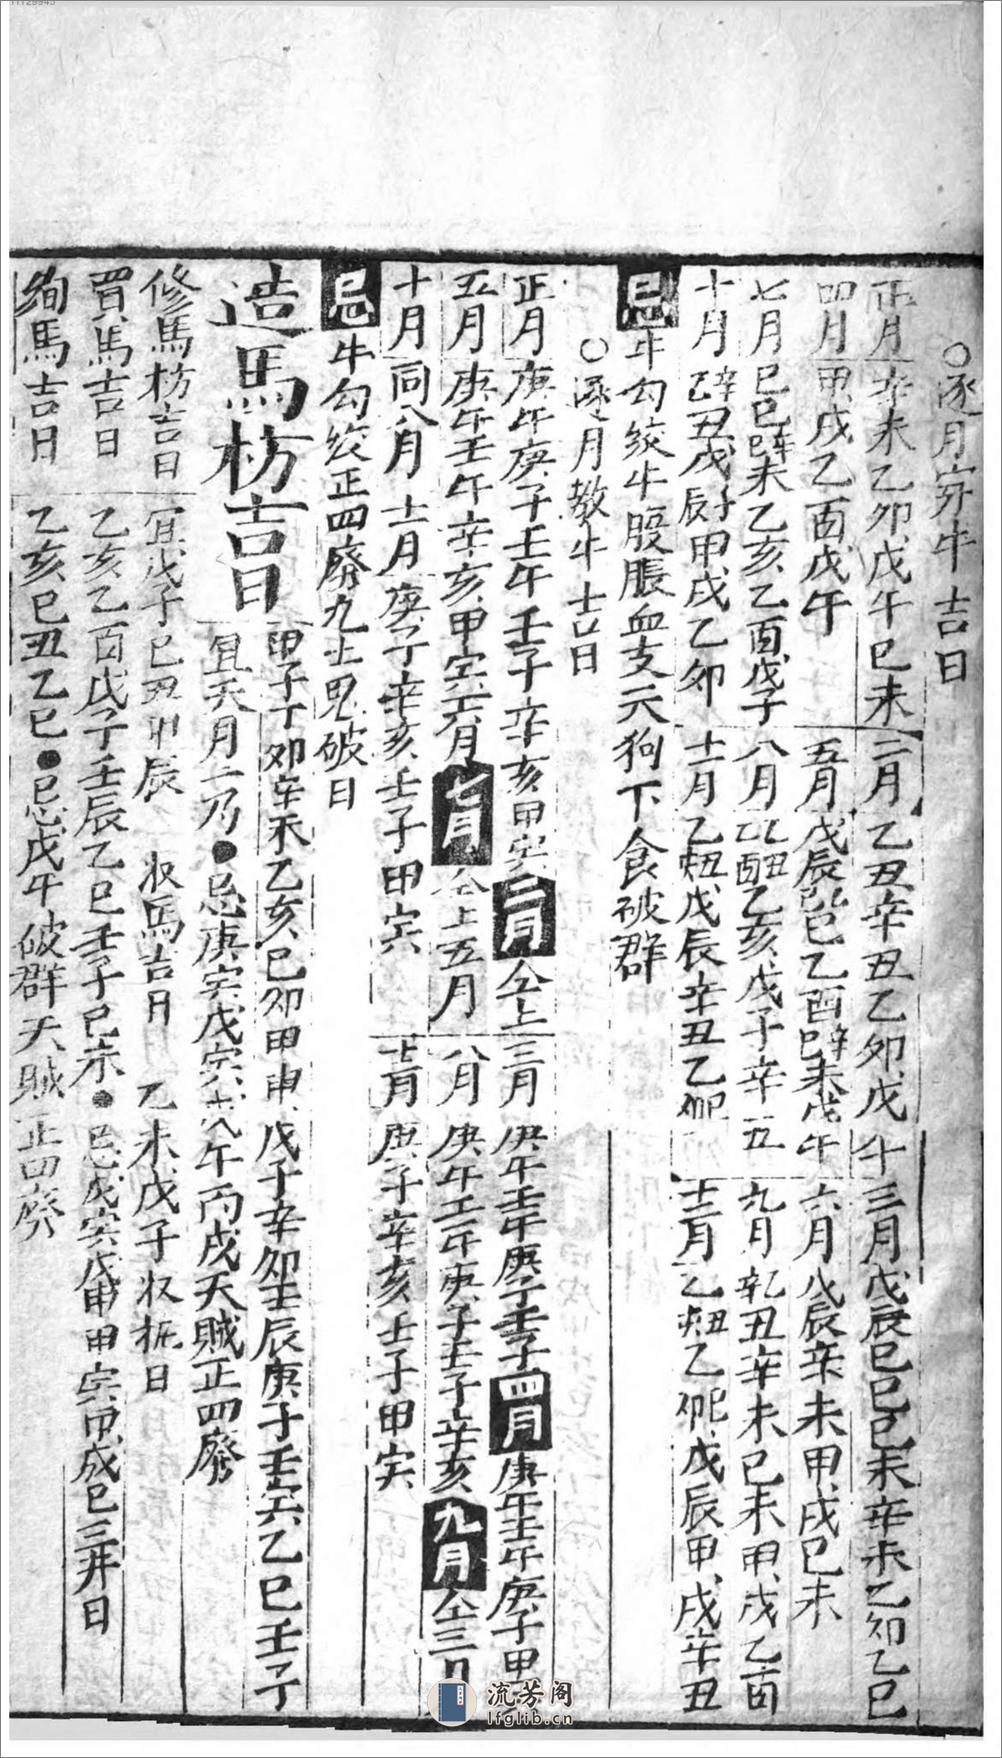 ○逐月穿牛吉日
正月辛未乙卯戊午己未二月乙丑辛丑乙卯戊午三月戊辰己巳己未辛未乙卯乙巳
四月甲戌乙酉戊午五月戊辰己巳乙酉辛巳未戊午六月戊辰辛未甲戌己未
七月己巳未乙亥乙酉戊子八月乙丑乙酉乙亥戊子辛丑九月辛丑辛未己未甲戌乙酉
十月辛丑戊辰甲戌乙卯十一月乙丑戊辰辛丑乙卯十二月乙丑乙卯戊辰甲戌辛丑
忌牛勾絞牛腹脹血支天狗下食破群
○逐月教牛吉日
正月庚午庚子壬午壬子辛亥甲寅二月仝上三月庚午壬午庚子壬子四月庚午壬午庚子甲
五月庚午壬午辛亥甲寅六月七月仝上五月八月庚午壬午庚子壬子辛亥九月仝三月
十月同八月十一月庚子辛亥壬子甲寅十二月庚子辛亥壬子甲寅
忌牛勾絞正四廢九土鬼破日
造馬枋吉日甲子丁卯辛未乙亥己卯甲申戊子辛卯壬辰庚子壬寅乙巳壬子
宜天月二德●忌庚寅戊寅戊午丙戌天賊正四廢
修馬枋吉日宜戊子己丑甲辰 收馬吉日 乙未戊子收柩日
買馬吉日乙亥乙酉戊子壬辰乙巳壬子己未●忌戊寅戊申甲寅甲戌
絢馬吉日乙亥己丑乙巳●忌戊午破群天賊正四廢
流芳阁
lfglib.cn